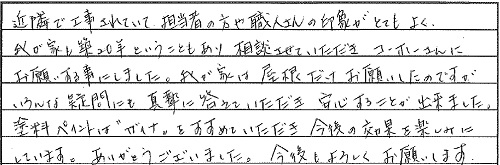 近隣で工事されていて、担当者の方や職人さんの印象がとてもよく、
我が家も築20年ということもあり 相談させていただき ユーホーさんに
お願いする事にしました。我が家は 屋根だけ お願いしたのですが
いろんな疑問にも 真摯に答えていただき 安心することが出来ました。
塗料ペイントは"ガイナ"をすすめていただき 今後の効果を楽しみに
しています。ありがとうございました。今後もよろしくお願いします。